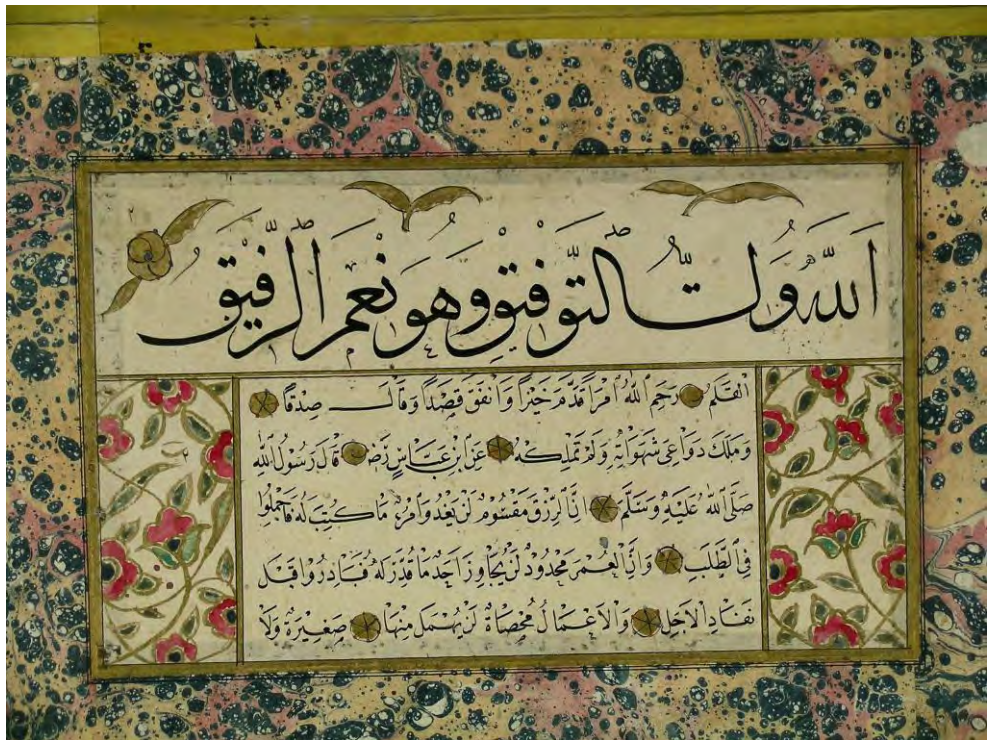 اَللّٰهُ وَلِيُّ التَّوْفِيقِ وَهُوَ نِعْمَ الرَّفِيقُ
الْقَلَمُ رَحِمَ اللّٰهُ امْرَأً قَدَّمَ خَيْرًا وَاَنْفَقَ قَصْدًا وَقَالَ صِدْقًا
وَمَلَكَ دَوَاعِىَ شَهَوَاتِهِ وَلَمْ تَمْلِكْهُ عَنِ ابْنِ عَبَّاسٍ رَضِ قَالَ رَسُولُ اللّٰهِ
صَلَّى اللّٰهُ عَلَيْهِ وَسَلَّمَ اِنَّ الرِّزْقَ مَقْسُومٌ لَنْ يَعْدُوَ امْرُءٌ مَا كُتِبَ لَهُ فَاَجْمِلُوا
فِى الطَّلَبِ وَاَنَّ الْعُمُرَ مَحْدُودٌ لَنْ يُجَاوِزَ اَحَدٌ مَا قُدِّرَ لَهُ فَبَادِرُوا قَبْلَ
نَفَادِ الْاَجَلِ وَالْاَعْمَالُ مُحْصَاةٌ لَنْ يُهْمَلَ مِنْهَا صَغِيرَةٌ وَلَا